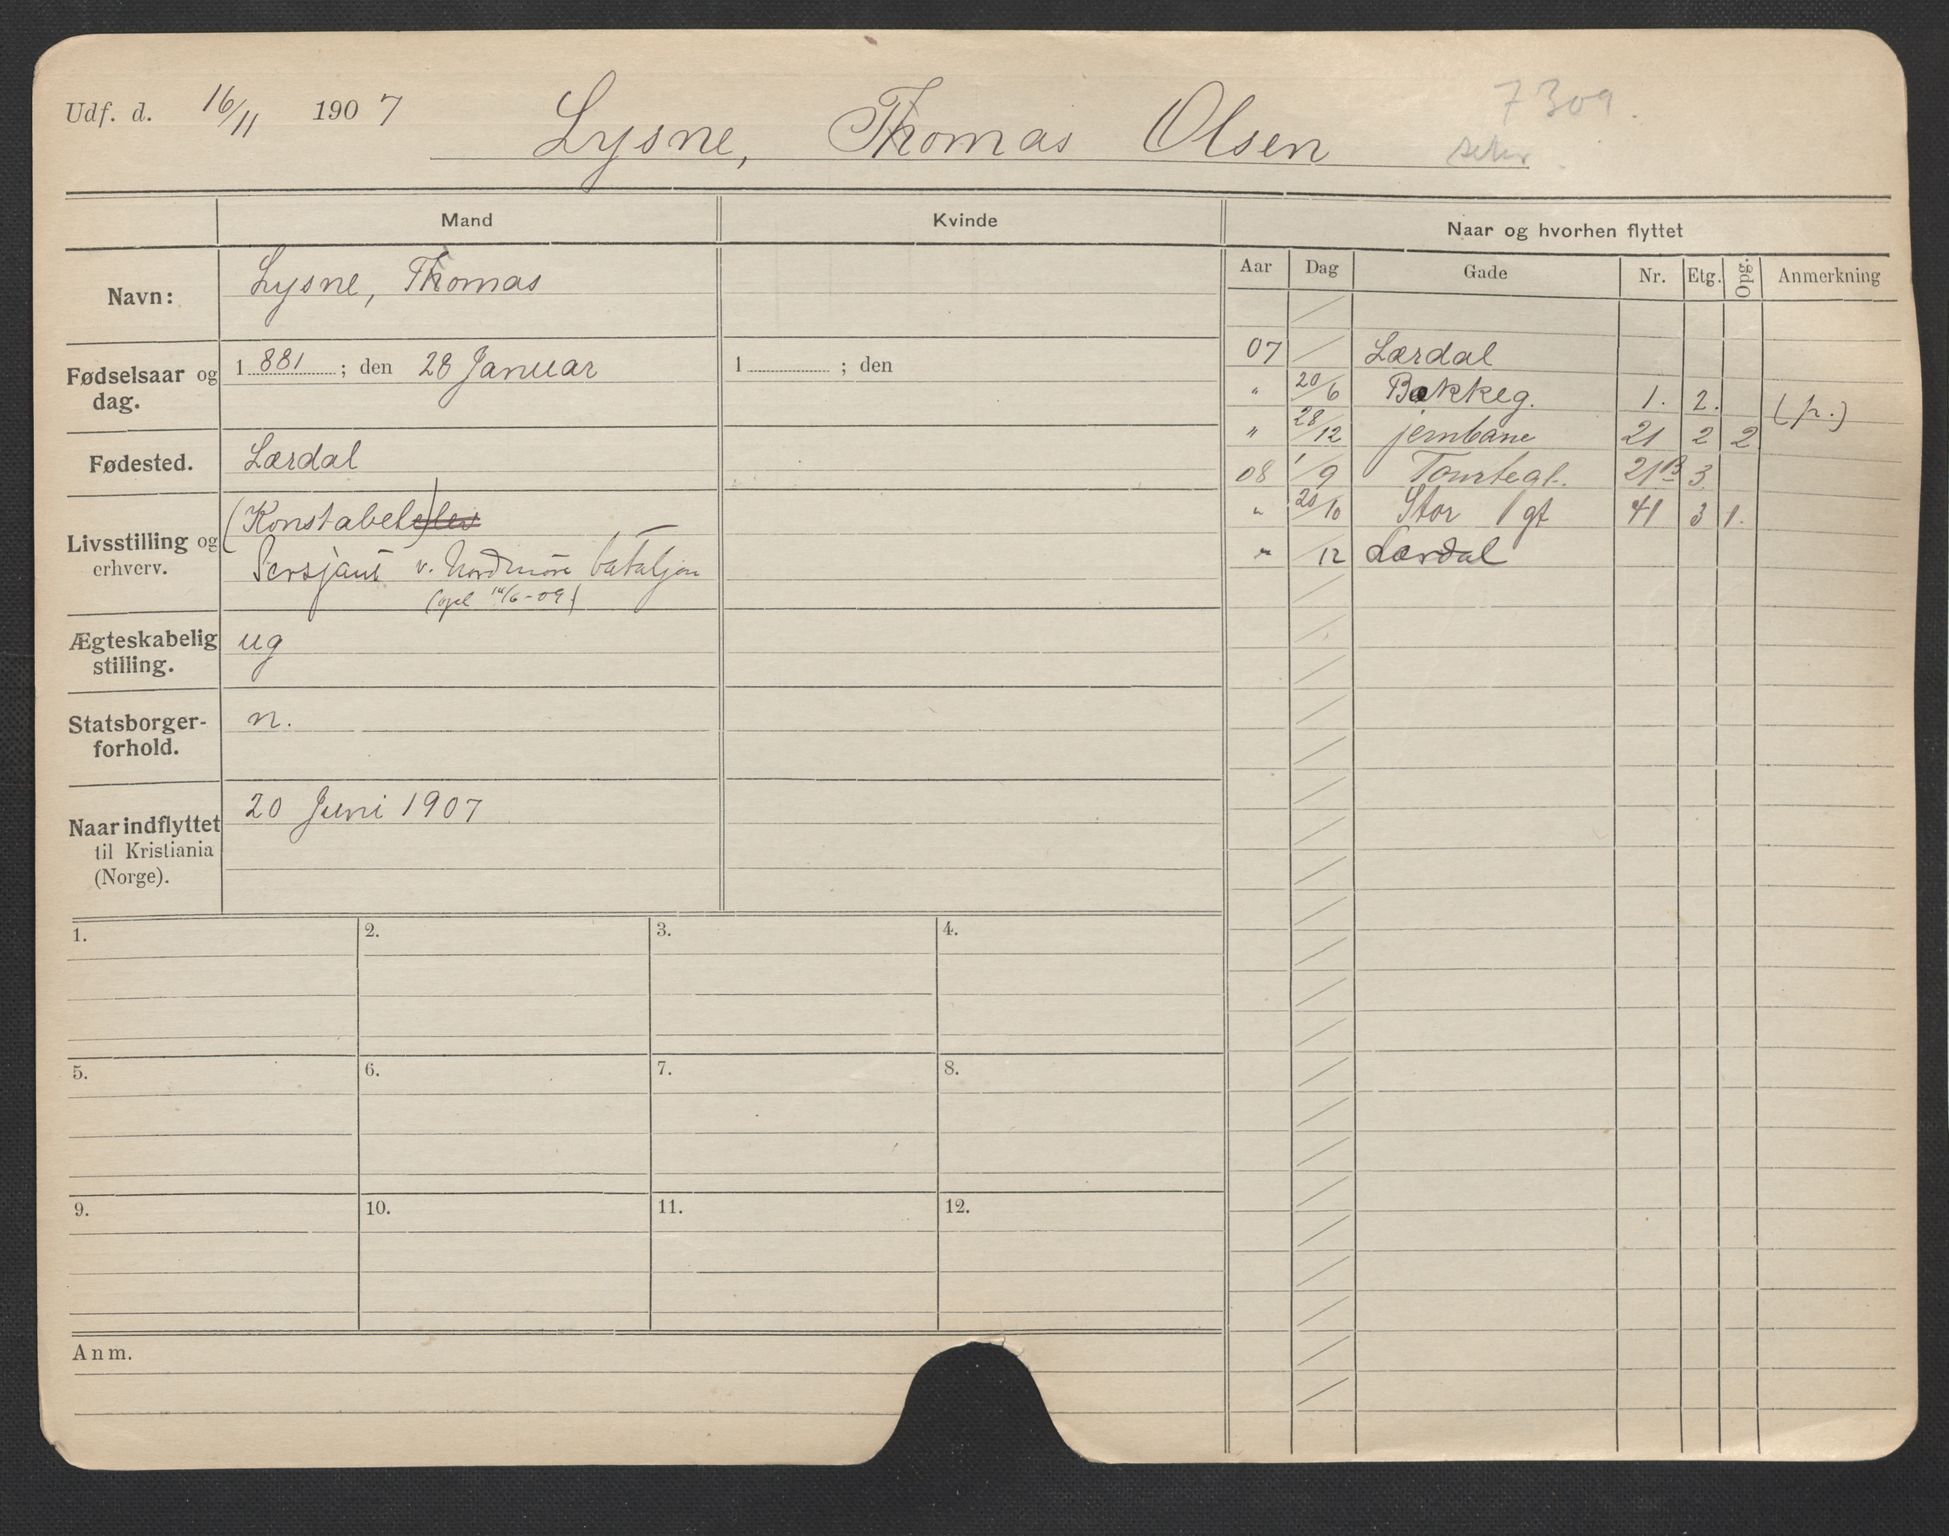 Udf. d. 16/11 1907
Lysne, Thomas Olsen
7309.
Mand
Kvinde
Naar og hvorhen flyttet
Aar Dag Gade Nr. Etg. Opg. Anmerkning
Navn: Lysne, Thomas
Fødselsaar og dag. 1881; den 28 Januar
1 ; den
Fødested. Lærdal
Livsstilling og erhverv. (Konstabel)elev
Sersjant v. Nordmøre bataljon
Ægteskabelig stilling. ug
Statsborger-forhold. n.
Naar indflyttet til Kristiania (Norge). 20 Juni 1907
07 Lærdal
" 20/6 Bakkeg. 1. 2. (fr.)
" 28/12 jernbane 21 2 2
08 1/9 Tomtegt. 21B 3
" 20/10 Stor gt 41 3 1.
" /12 Lærdal
1.
2.
3.
4.
5.
6.
7.
8.
9.
10.
11.
12.
Anm.